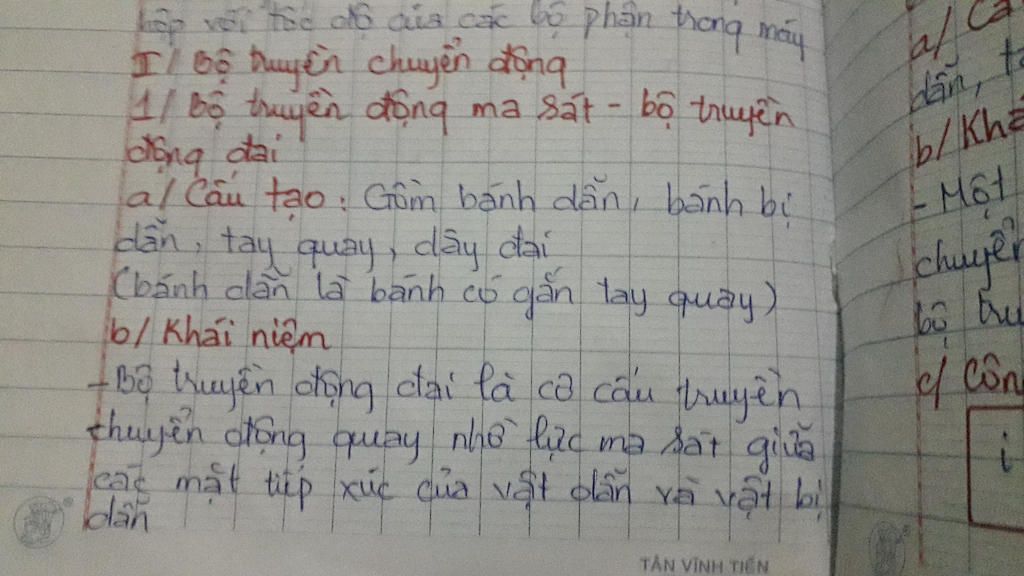 hợp với tốc độ của các bộ phận trong máy
II/ Bộ truyền chuyển động
1/ Bộ truyền động ma sát - bộ truyền
động đai
a/ Cấu tạo: Gồm bánh dẫn, bánh bị
dẫn, tay quay, dây đai
(bánh dẫn là bánh có gắn tay quay)
b/ Khái niệm
- Bộ truyền động đai là cơ cấu truyền
chuyển động quay nhờ lực ma sát giữa
các mặt tiếp xúc của vật dẫn và vật bị
dẫn
TÂN VĨNH TIẾN
a/ Cấ
dẫn, t
b/ Khá
- Một
chuyển
bộ tru
c/ Côn
i